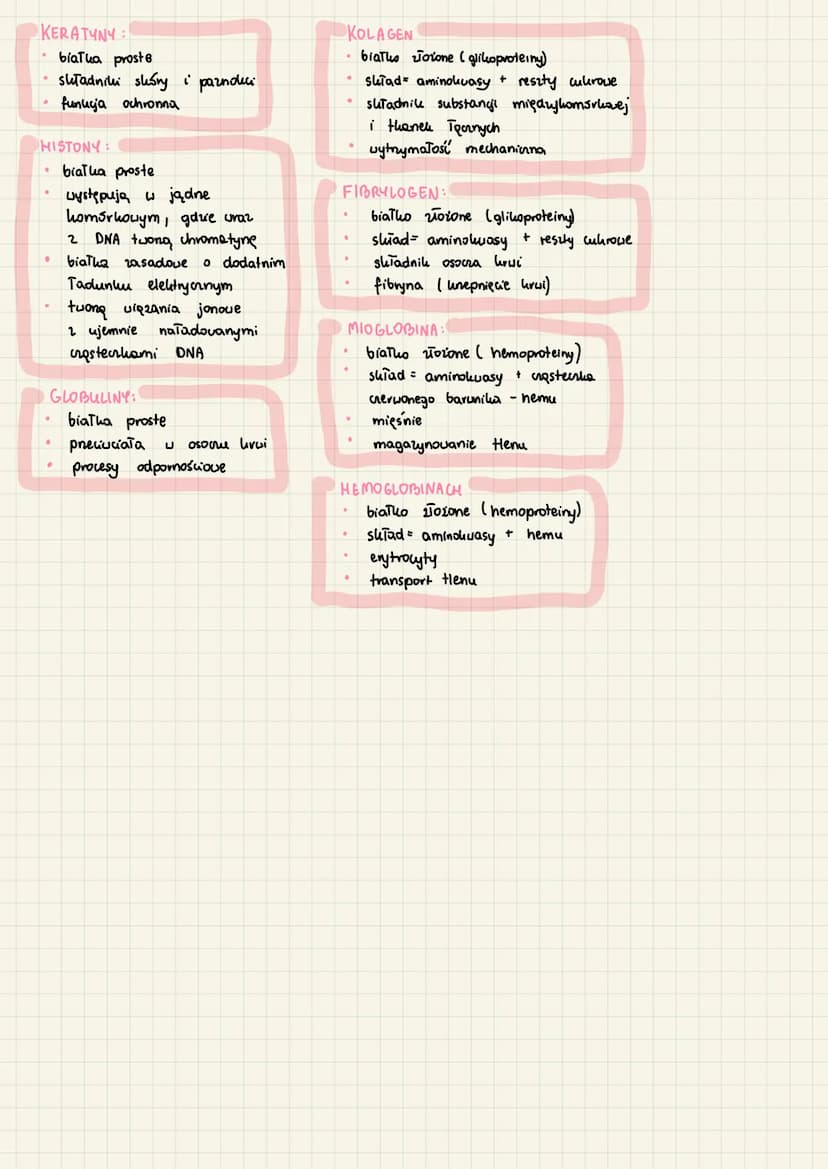 KERATYNY:
• białka proste
• składniki skóry i paznokci
• funkcja ochronna
HISTONY:
• białka proste
• występują w jądrze
komórkowym, gdzie wraz
z DNA tworzą chromatynę
• białka zasadowe o dodatnim
ładunku elektrycznym
• tworzą wiązania jonowe
z ujemnie naładowanymi
cząsteczkami DNA
GLOBULINY:
• białka proste
• przeciwciała w osoczu krwi
• procesy odpornościowe
KOLAGEN
• białko złożone (glikoproteiny)
• skład= aminokwasy + reszty cukrowe
• składnik substancji międzykomórkowej
i tkanek łącznych
• wytrzymałość mechaniczna
FIBRYLOGEN:
• białko złożone (glikoproteiny)
• skład= aminokwasy + reszty cukrowe
• składnik osocza krwi
• fibryna (krzepnięcie krwi)
MIOGLOBINA:
• białko złożone (hemoproteiny)
• skład = aminokwasy + cząsteczka
czerwonego barwnika - hemu
• mięśnie
• magazynowanie tlenu
HEMOGLOBINACH
• białko złożone (hemoproteiny)
• skład= aminokwasy + hemu
• erytrocyty
• transport tlenu